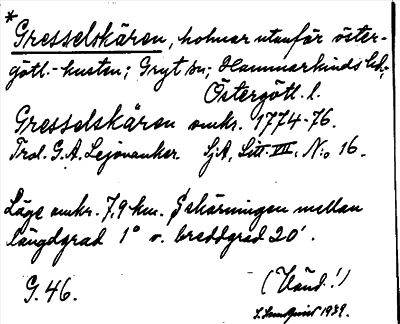 * Gresselskären, holmar utanför öster-
götl.-kusten; Gryt sn; Hammarkinds hd.;
Östergötl. l.
Gresselskären omkr. 1774-76.
Trol. G. A. Lejovanker. SjA, Litt. VII. N:o 16.
Läge omkr. 7,9 km. S skärningen mellan
längdgrad 1° o. breddgrad 20'.
G. 46.
(Vänd!)
I. Lundquist 1939.